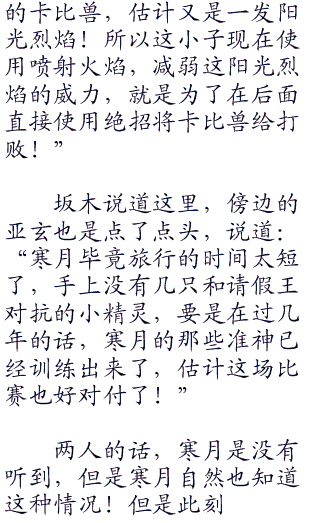 的卡比兽，估计又是一发阳
光烈焰！所以这小子现在使
用喷射火焰，减弱这阳光烈
焰的威力，就是为了在后面
直接使用绝招将卡比兽给打
败！”
坂木说道这里，傍边的
亚玄也是点了点头，说道：
“寒月毕竟旅行的时间太短
了，手上没有几只和请假王
对抗的小精灵，要是在过几
年的话，寒月的那些准神已
经训练出来了，估计这场比
赛也好对付了！”
两人的话，寒月是没有
听到，但是寒月自然也知道
这种情况！但是此刻